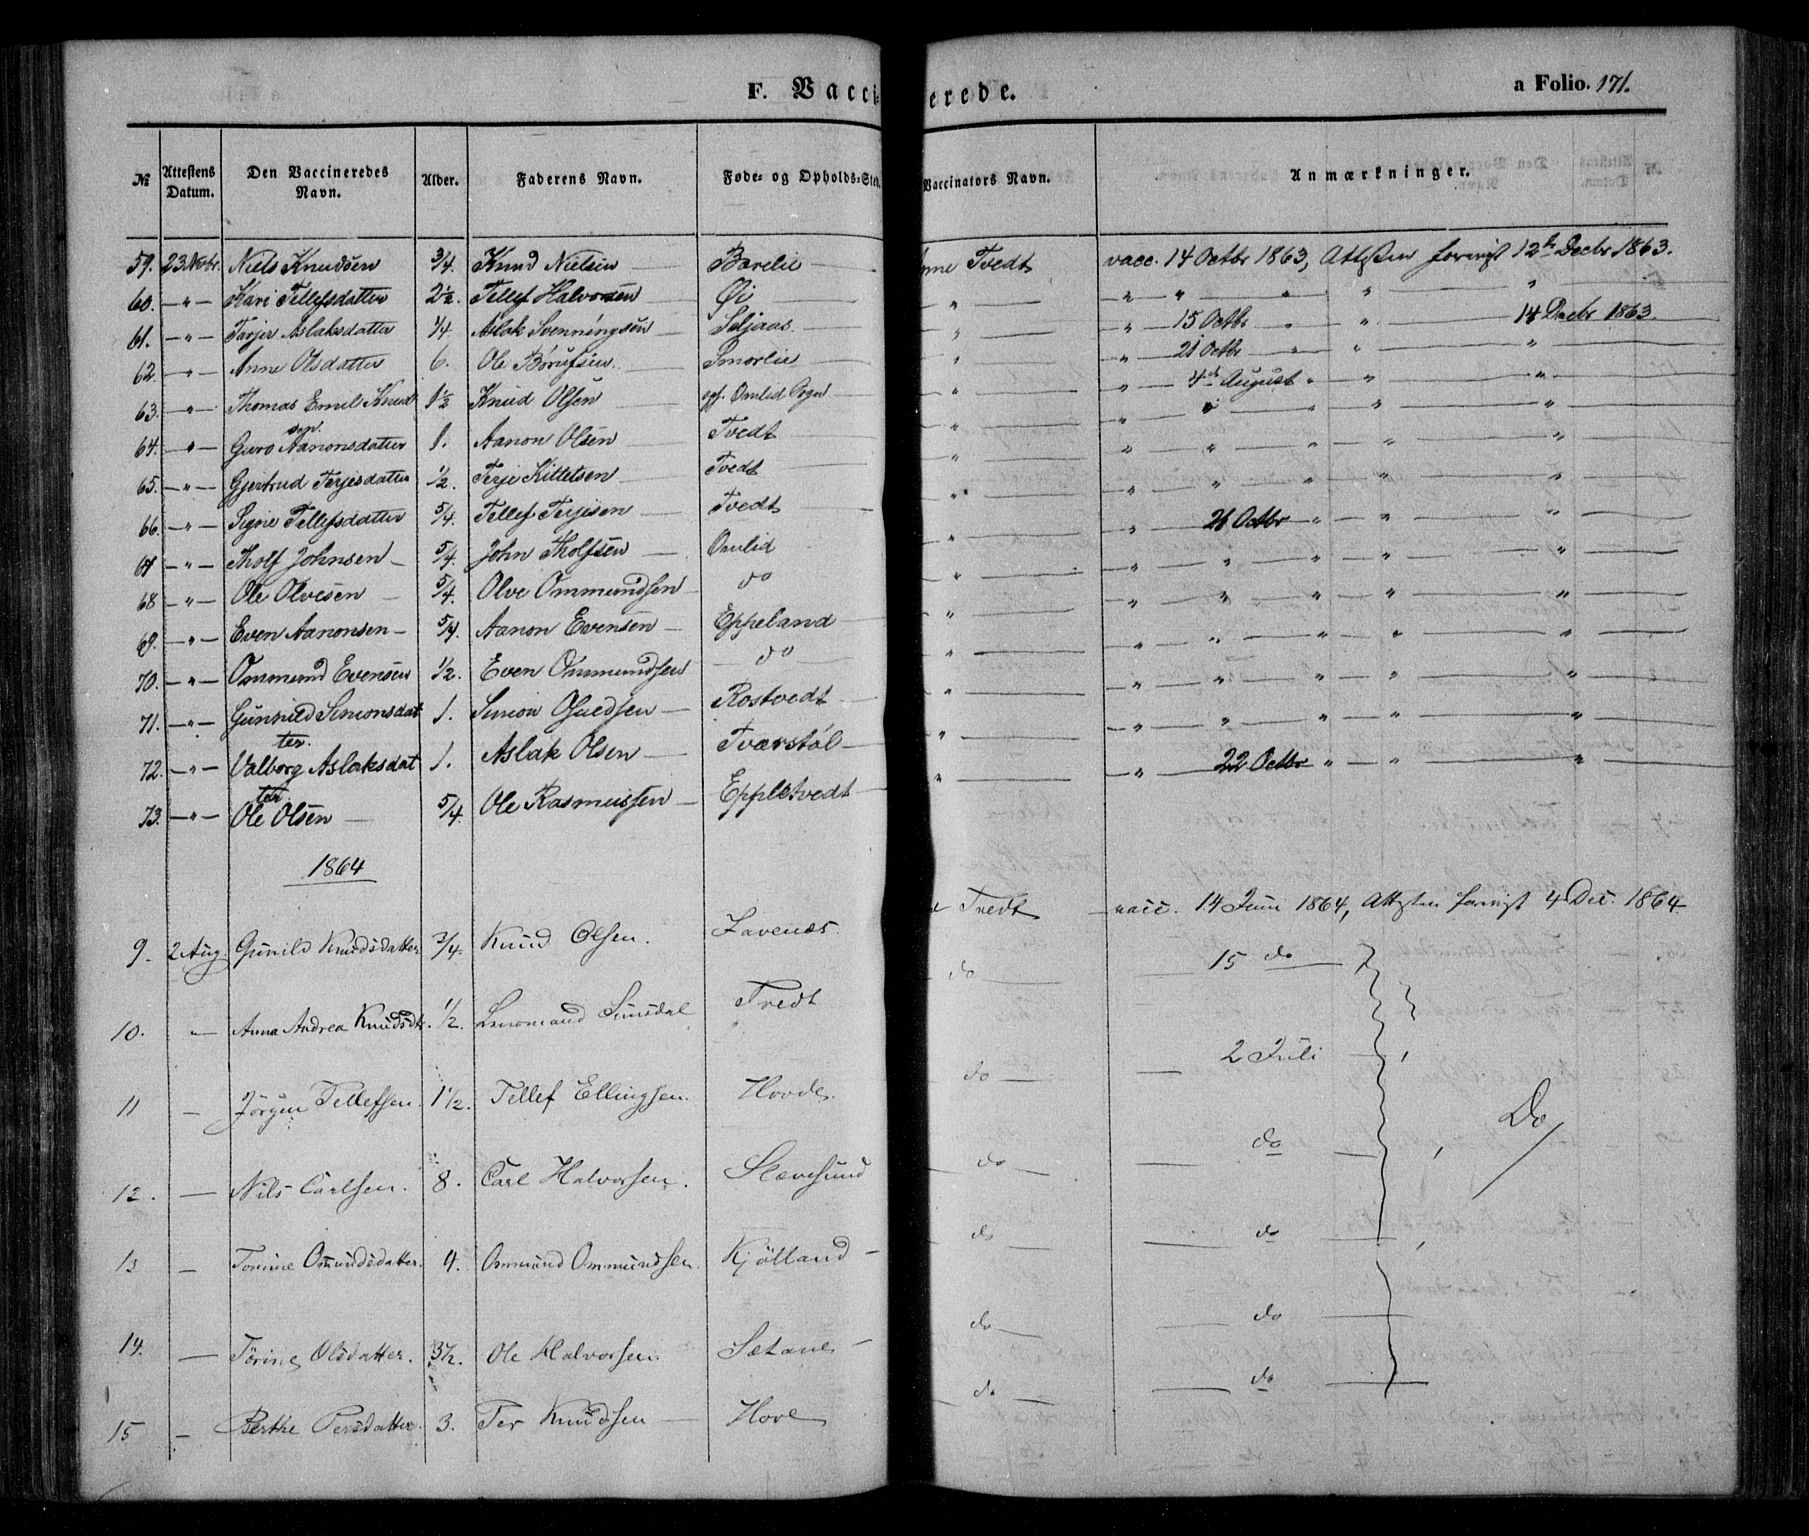 F. Vaccinerede. a Folio. 171.
№ Attestens Datum. Den Vaccineredes Navn. Alder. Faderens Navn. Føde- og Opholds-Sted. Vaccinators Navn. Anmærkninger.
59. 23 Nvbr. Niels Knudsen 3/4. Knud Nielsen Borelie Tvedt vacc. 14 Octbr 1863, Attesten forevist 12te Decbr 1863.
60. -"- Kari Tellefsdatter 2½. Tellef Halvorsen Øi " " " " " "
61. -"- Tarjer Aslaksdatter 1/4 Aslak Svenningsen Seljaas " " 15 Octbr " " 14 Decbr 1863.
62. -"- Anne Olsdatter 6. Ole Børufsen Smorlie " " 21 Octbr " " "
63. -"- Thomas Emil Knudsen 1½ Knud Olsen Omlid Sogn " " 4de August " " "
64. -"- Guro Aanonsdatter 1. Aanon Olsen Tvedt " " " " " "
65. -"- Gjertrud Terjesdatter 1/2. Terje Kittelsen Tvedt " " " " " "
66. -"- Signe Tellefsdatter 5/4. Tellef Terjesen Tvedt " " " " " "
67 -"- Tholf Johnsen 5/4. John Tholfsen Omlid " " 21 Octbr " " "
68 -"- Ole Olvesen 5/4. Olve Ommundsen do " " " " " "
69. -"- Even Aanonsen 5/4. Aanon Evensen Eppeland " " " " " "
70. -"- Ommund Evensen 1/2. Even Ommundsen do " " " " " "
71. -"- Gunnild Simonsdatter 1. Simon Olsen Rostvedt " " " " " "
72. -"- Valborg Aslaksdatter 1. Aslak Olsen Tværstøl " " " " " "
73. -"- Ole Olsen 5/4. Ole Rasmussen Eppletvedt " " 22 Octbr " " "
1864
9. 2 Aug. Gunild Knudsdatter 3/4. Knud Olsen. Lavenes Tvedt vacc. 14 Juni 1864, Attesten forevist 4 Dec. 1864
10. " Anna Andrea Knudsdtr. 1/2. Lensmand Sunsdal Tvedt do 15 do
11 - Jörgen Tellefsen. 1½. Tellef Ellingsen. Hovde. do 2 Juli Do
12. - Nils Carlsen. 8. Carl Halvorsen. Slævesund do do
13 - Torine Omundsdatter. 4. Ommund Ommundsen. Kjölland do do
14. - Törine Olsdatter. 3½. Ole Halvorsen. Sætane do do
15 - Berthe Persdatter. 3. Per Knudsen Hove do do